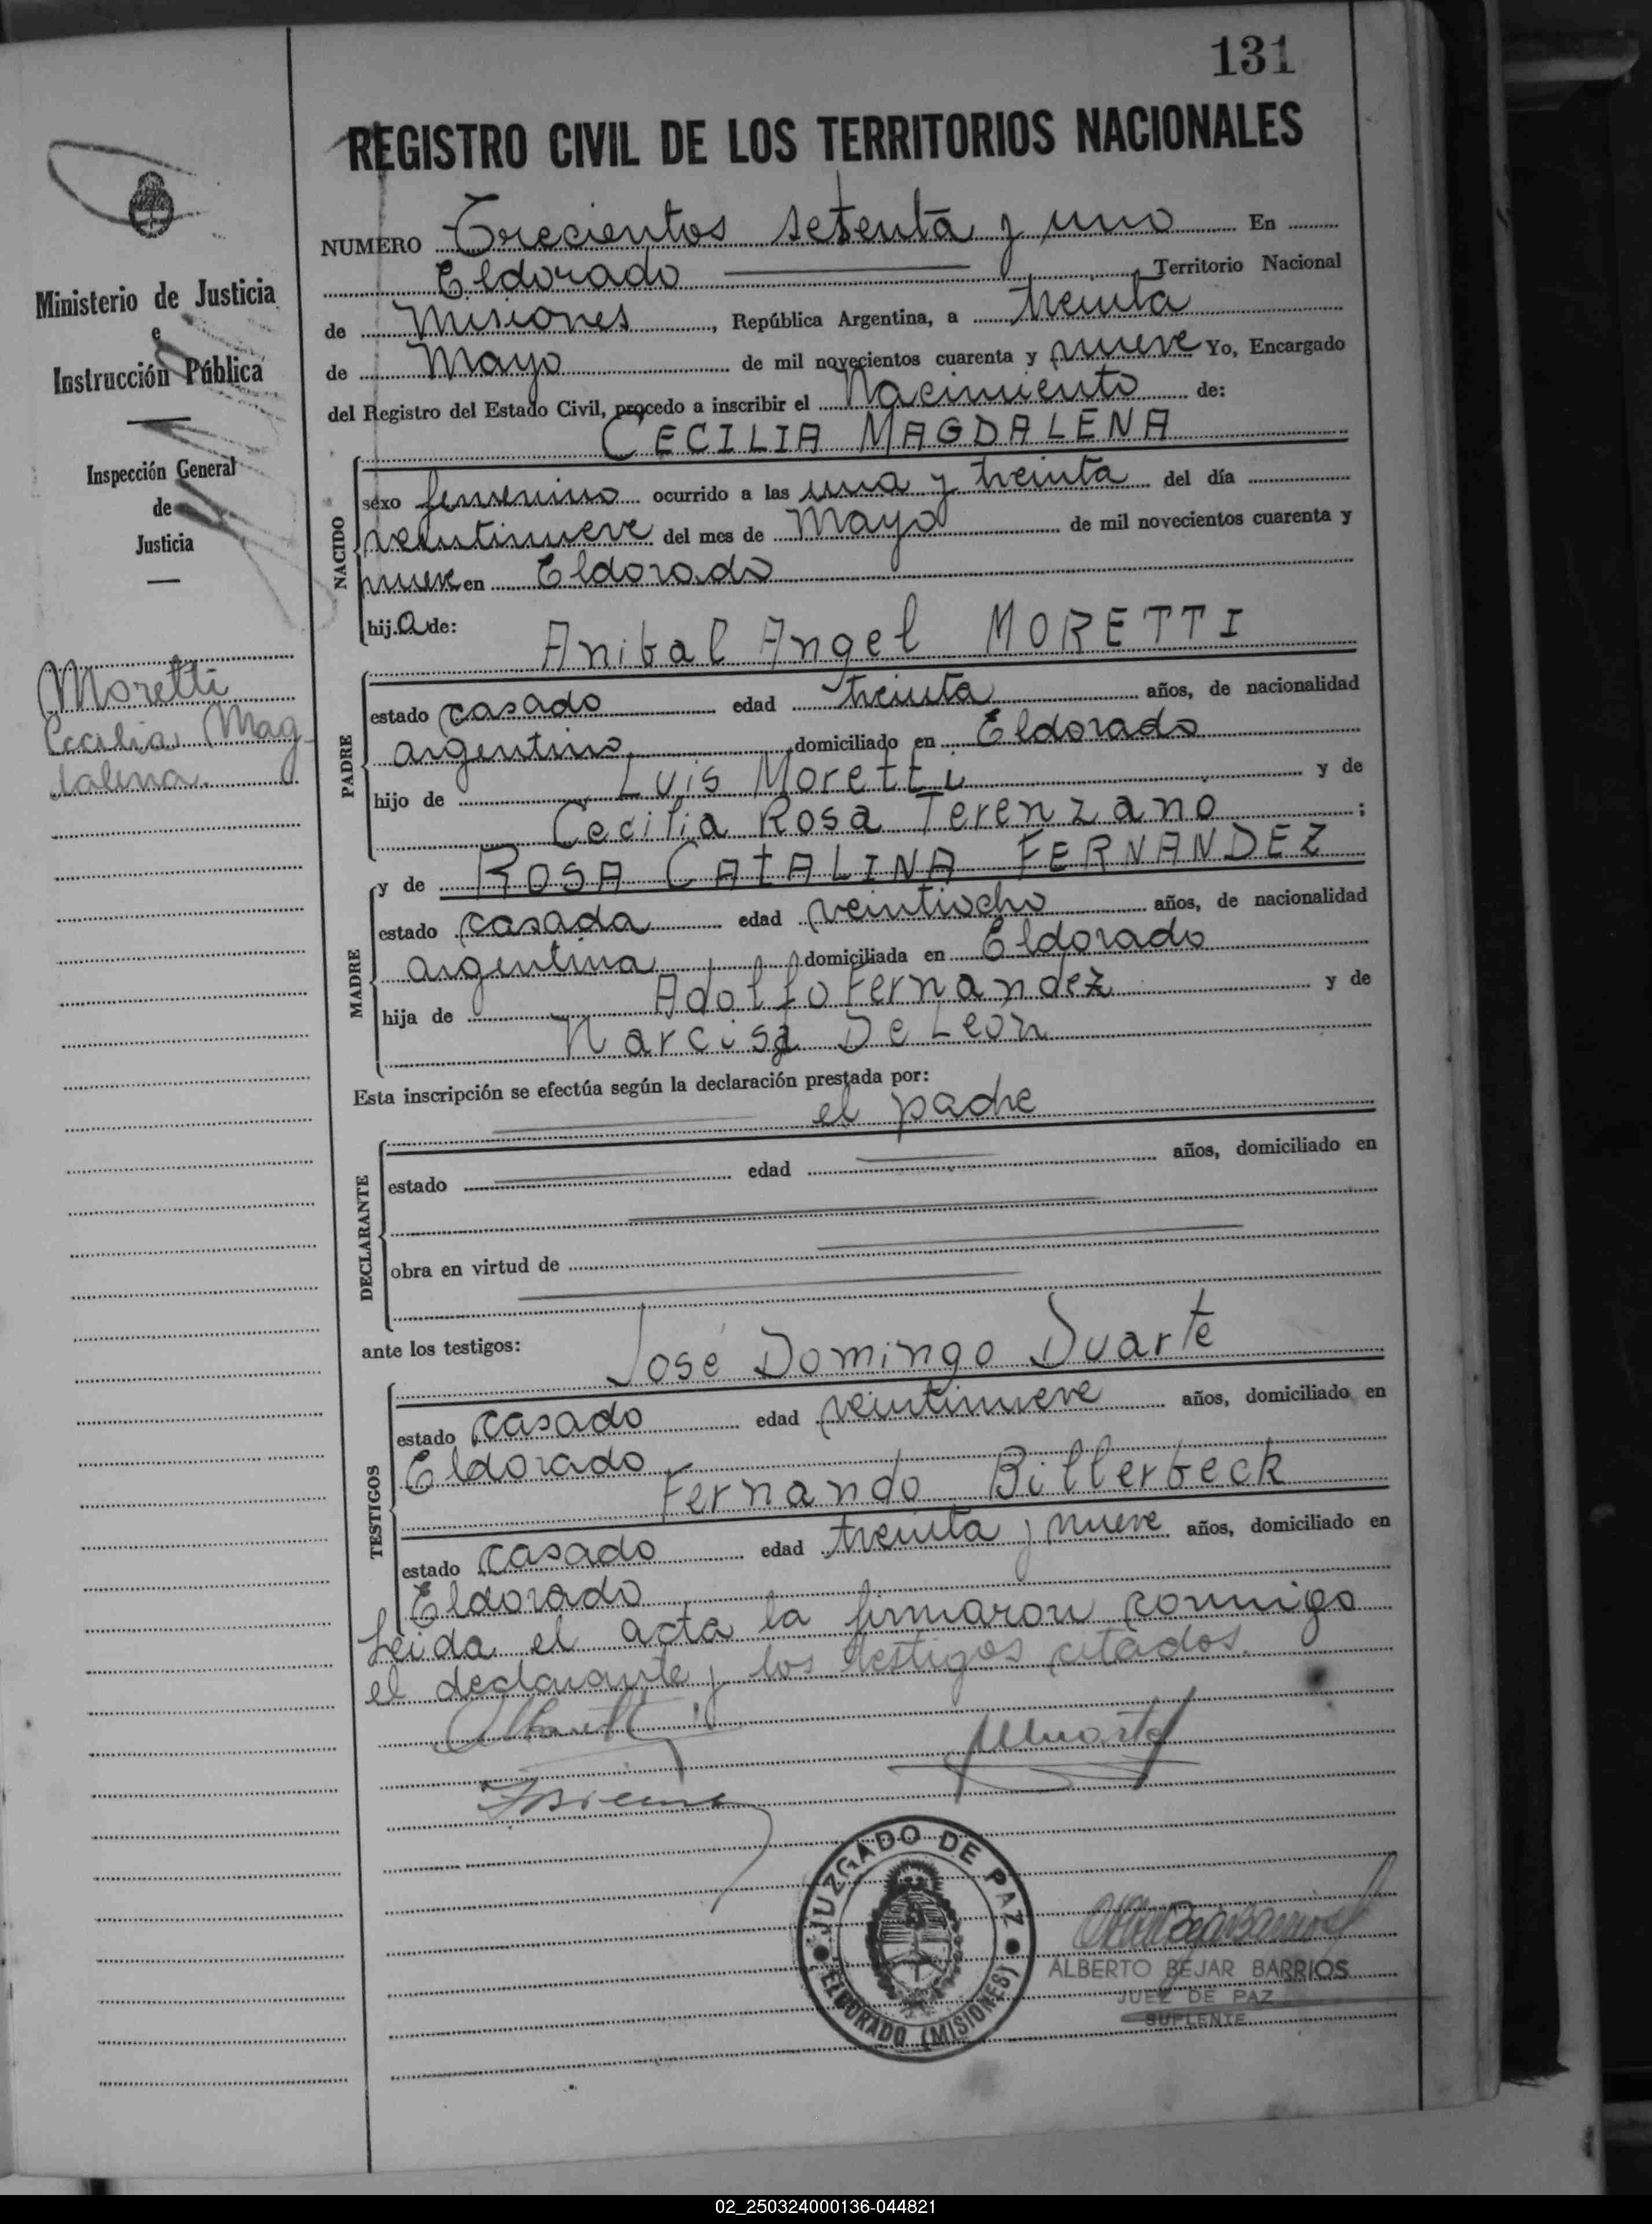 131
REGISTRO CIVIL DE LOS TERRITORIOS NACIONALES
Ministerio de Justicia
e
Instrucción Pública
Inspección General
de
Justicia
Moretti
Cecilia Mag-
dalena.
NUMERO Trecientos setenta y uno En
Eldorado Territorio Nacional
de Misiones, República Argentina, a treinta
de Mayo de mil novecientos cuarenta y nueve Yo, Encargado
del Registro del Estado Civil, procedo a inscribir el Nacimiento de:
CECILIA MAGDALENA
NACIDO
sexo femenino ocurrido a las una y treinta del día
veintinueve del mes de Mayo de mil novecientos cuarenta y
nueve en Eldorado
hija de: Anibal Angel MORETTI
PADRE
estado casado edad treinta años, de nacionalidad
argentino, domiciliado en Eldorado
hijo de Luis Moretti y de
Cecilia Rosa Terenzano ;
y de ROSA CATALINA FERNANDEZ
MADRE
estado casada edad veintiocho años, de nacionalidad
argentina, domiciliada en Eldorado
hija de Adolfo Fernandez y de
Narcisa De Leon
Esta inscripción se efectúa según la declaración prestada por:
el padre
DECLARANTE
estado edad años, domiciliado en
obra en virtud de
ante los testigos: José Domingo Duarte
TESTIGOS
estado casado edad veintinueve años, domiciliado en
Eldorado
Fernando Billerbeck
estado casado edad treinta y nueve años, domiciliado en
Eldorado
Leida el acta la firmaron conmigo
el declarante y los testigos citados.
JUZGADO DE PAZ
ELDORADO (MISIONES)
ALBERTO BEJAR BARRIOS
JUEZ DE PAZ
SUPLENTE
02_250324000136-044821